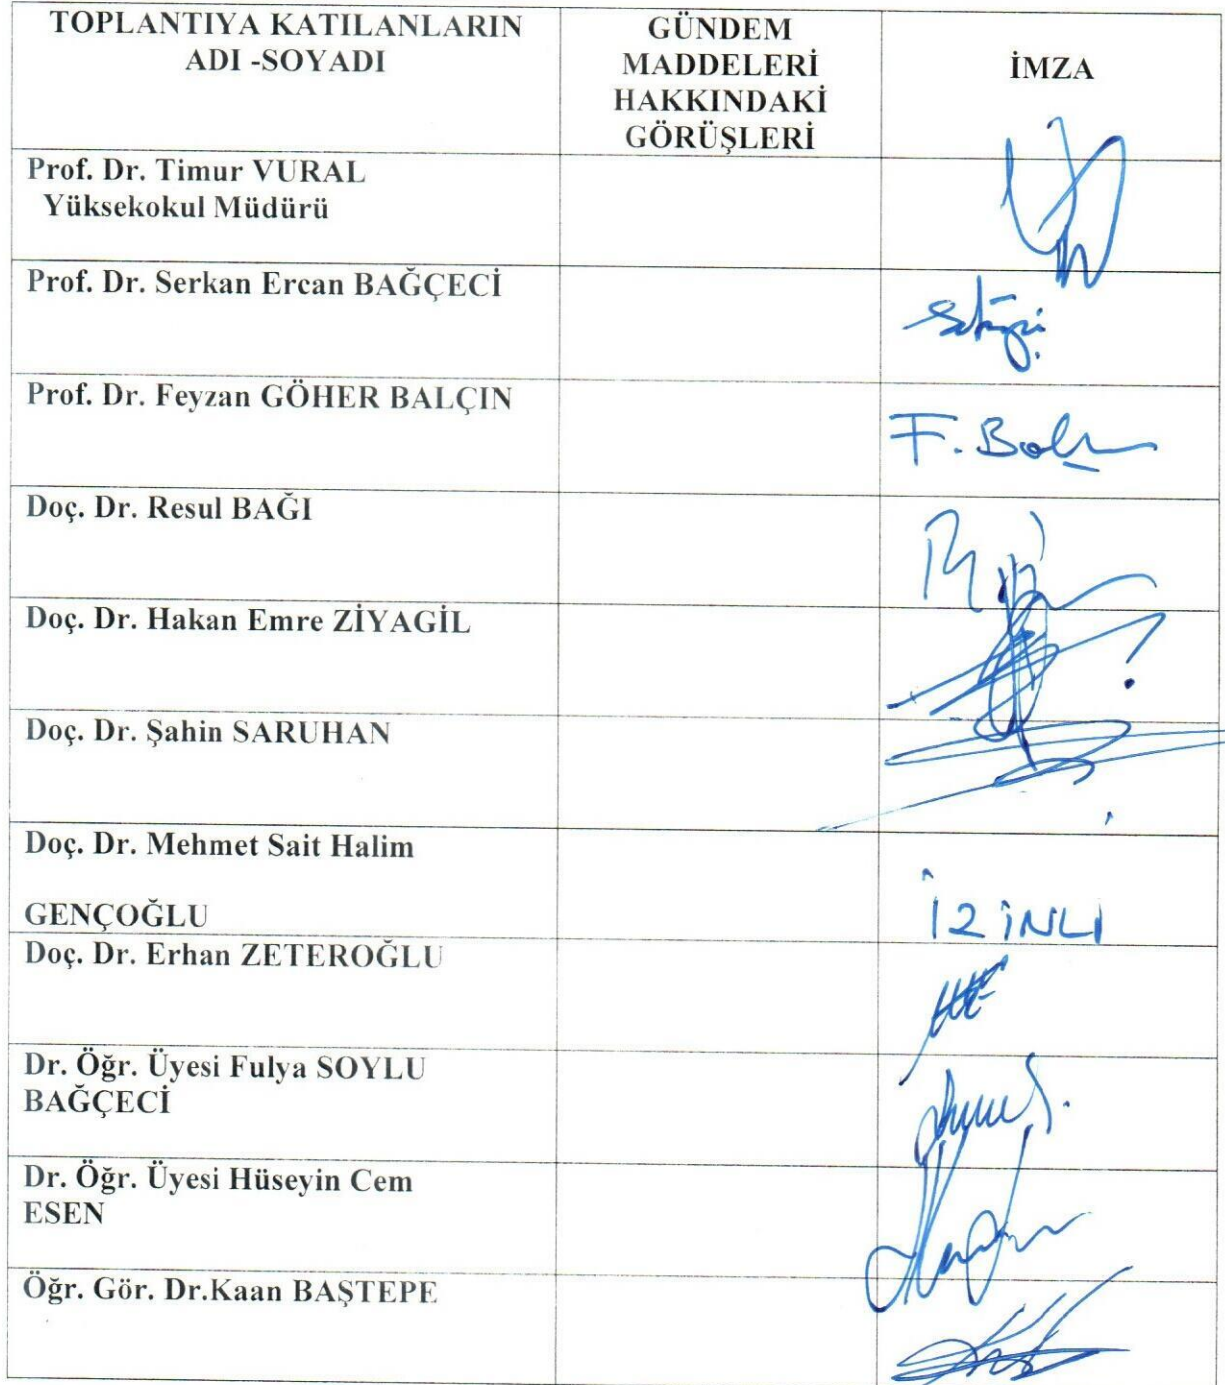 TOPLANTIYA KATILANLARIN
ADI -SOYADI
GÜNDEM
MADDELERİ
HAKKINDAKİ
GÖRÜŞLERİ
İMZA
Prof. Dr. Timur VURAL
Yüksekokul Müdürü
Prof. Dr. Serkan Ercan BAĞÇECİ
Prof. Dr. Feyzan GÖHER BALÇIN
F. Balı
Doç. Dr. Resul BAĞI
Doç. Dr. Hakan Emre ZİYAGİL
Doç. Dr. Şahin SARUHAN
Doç. Dr. Mehmet Sait Halim
GENÇOĞLU
İZİNLİ
Doç. Dr. Erhan ZETEROĞLU
Dr. Öğr. Üyesi Fulya SOYLU
BAĞÇECİ
Dr. Öğr. Üyesi Hüseyin Cem
ESEN
Öğr. Gör. Dr.Kaan BAŞTEPE